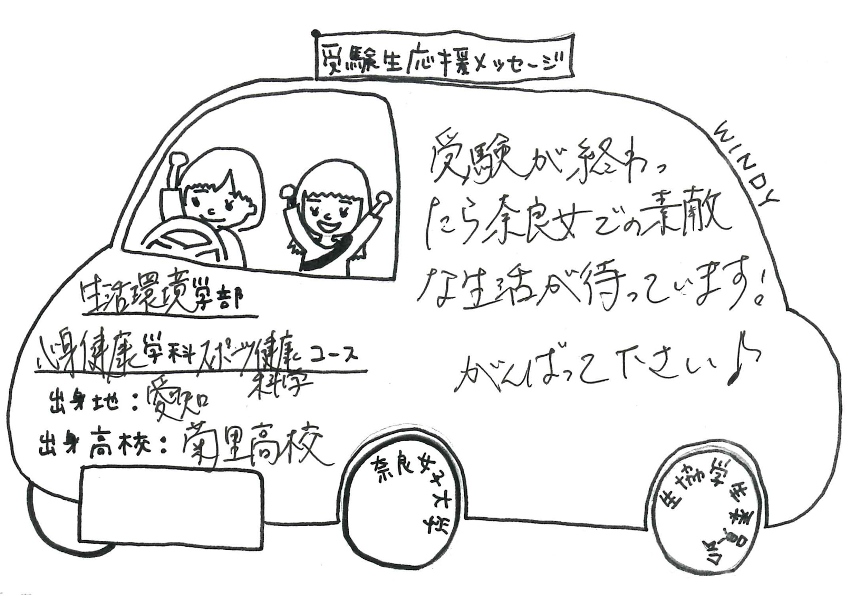 受験生応援メッセージ
WINDY
受験が終わっ
たら奈良女での素敵
な生活が待っています!
がんばって下さい♪
生活環境学部
心身健康学科スポーツ健康コース
科学
出身地:愛知
出身高校:菊里高校
奈良女子大学
生協学生委員会